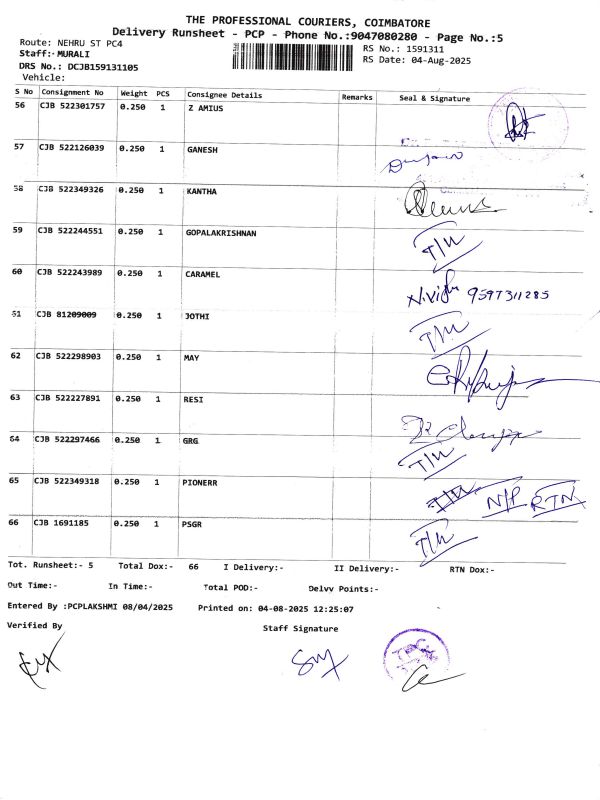 THE PROFESSIONAL COURIERS, COIMBATORE
Delivery Runsheet - PCP - Phone No.:9047080280 - Page No.:5
Route: NEHRU ST PC4 RS No.: 1591311
Staff:- MURALI RS Date: 04-Aug-2025
DRS No.: DCJB159131105
Vehicle:
S No Consignment No Weight PCS Consignee Details Remarks Seal & Signature
56 CJB 522301757 0.250 1 Z AMIUS
57 CJB 522126039 0.250 1 GANESH
58 CJB 522349326 0.250 1 KANTHA
59 CJB 522244551 0.250 1 GOPALAKRISHNAN T/W
60 CJB 522243989 0.250 1 CARAMEL 9597311285
61 CJB 81209009 0.250 1 JOTHI T/W
62 CJB 522298903 0.250 1 MAY
63 CJB 522227891 0.250 1 RESI
64 CJB 522297466 0.250 1 GRG T/W
65 CJB 522349318 0.250 1 PIONERR N/P RTN
66 CJB 1691185 0.250 1 PSGR T/W
Tot. Runsheet:- 5 Total Dox:- 66 I Delivery:- II Delivery:- RTN Dox:-
Out Time:- In Time:- Total POD:- Delvv Points:-
Entered By :PCPLAKSHMI 08/04/2025 Printed on: 04-08-2025 12:25:07
Verified By Staff Signature